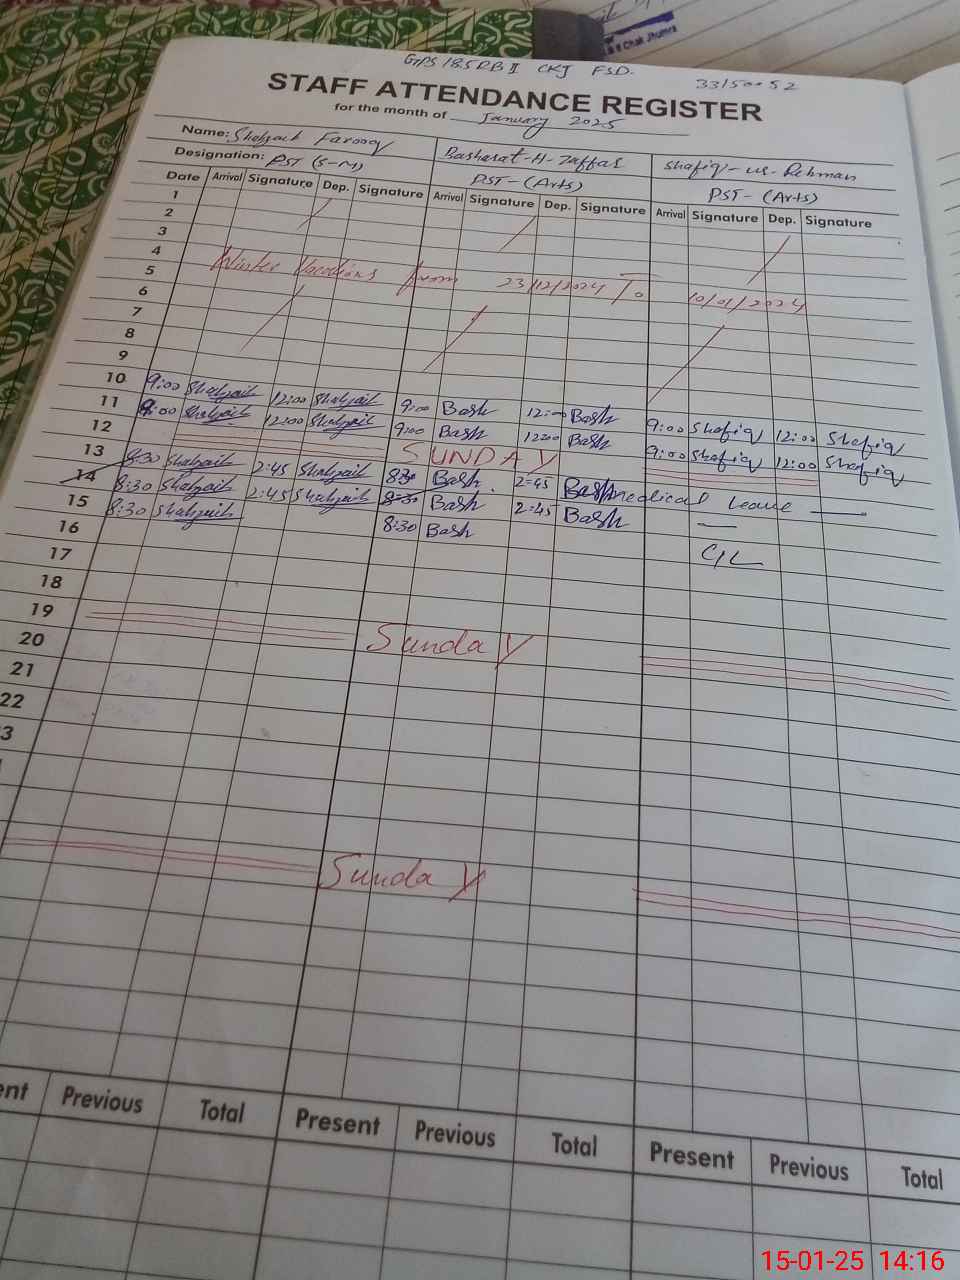 & Chak Jhumra
GPS 185 RB II CKJ FSD.
33150052
STAFF ATTENDANCE REGISTER
for the month of January 2025
Name: Shahzaib Farooq Basharat-H-Zaffar Shafiq-ur-Rehman
Designation: PST (S-M) PST-(Arts) PST-(Arts)
Date Arrival Signature Dep. Signature Arrival Signature Dep. Signature Arrival Signature Dep. Signature
1
2
3
4
5 Winter Vacations from 23/12/2024 To 10/01/2024
6
7
8
9
10 9:00 Shahzaib 12:00 Shahzaib 9:00 Bash 12:00 Bash 9:00 Shafiq 12:00 Shafiq
11 9:00 Shahzaib 12:00 Shahzaib 9:00 Bash 1200 Bash 9:00 Shafiq 12:00 Shafiq
12 SUNDAY
13 8:30 Shahzaib 2:45 Shahzaib 830 Bash 2:45 Bash medical Leave
14 8:30 Shahzaib 2:45 Shahzaib 8:30 Bash 2:45 Bash
15 8:30 Shahzaib 8:30 Bash C/L
16
17
18
19 Sunday
20
21
22
3
Sunday
ent Previous Total Present Previous Total Present Previous Total
15-01-25 14:16